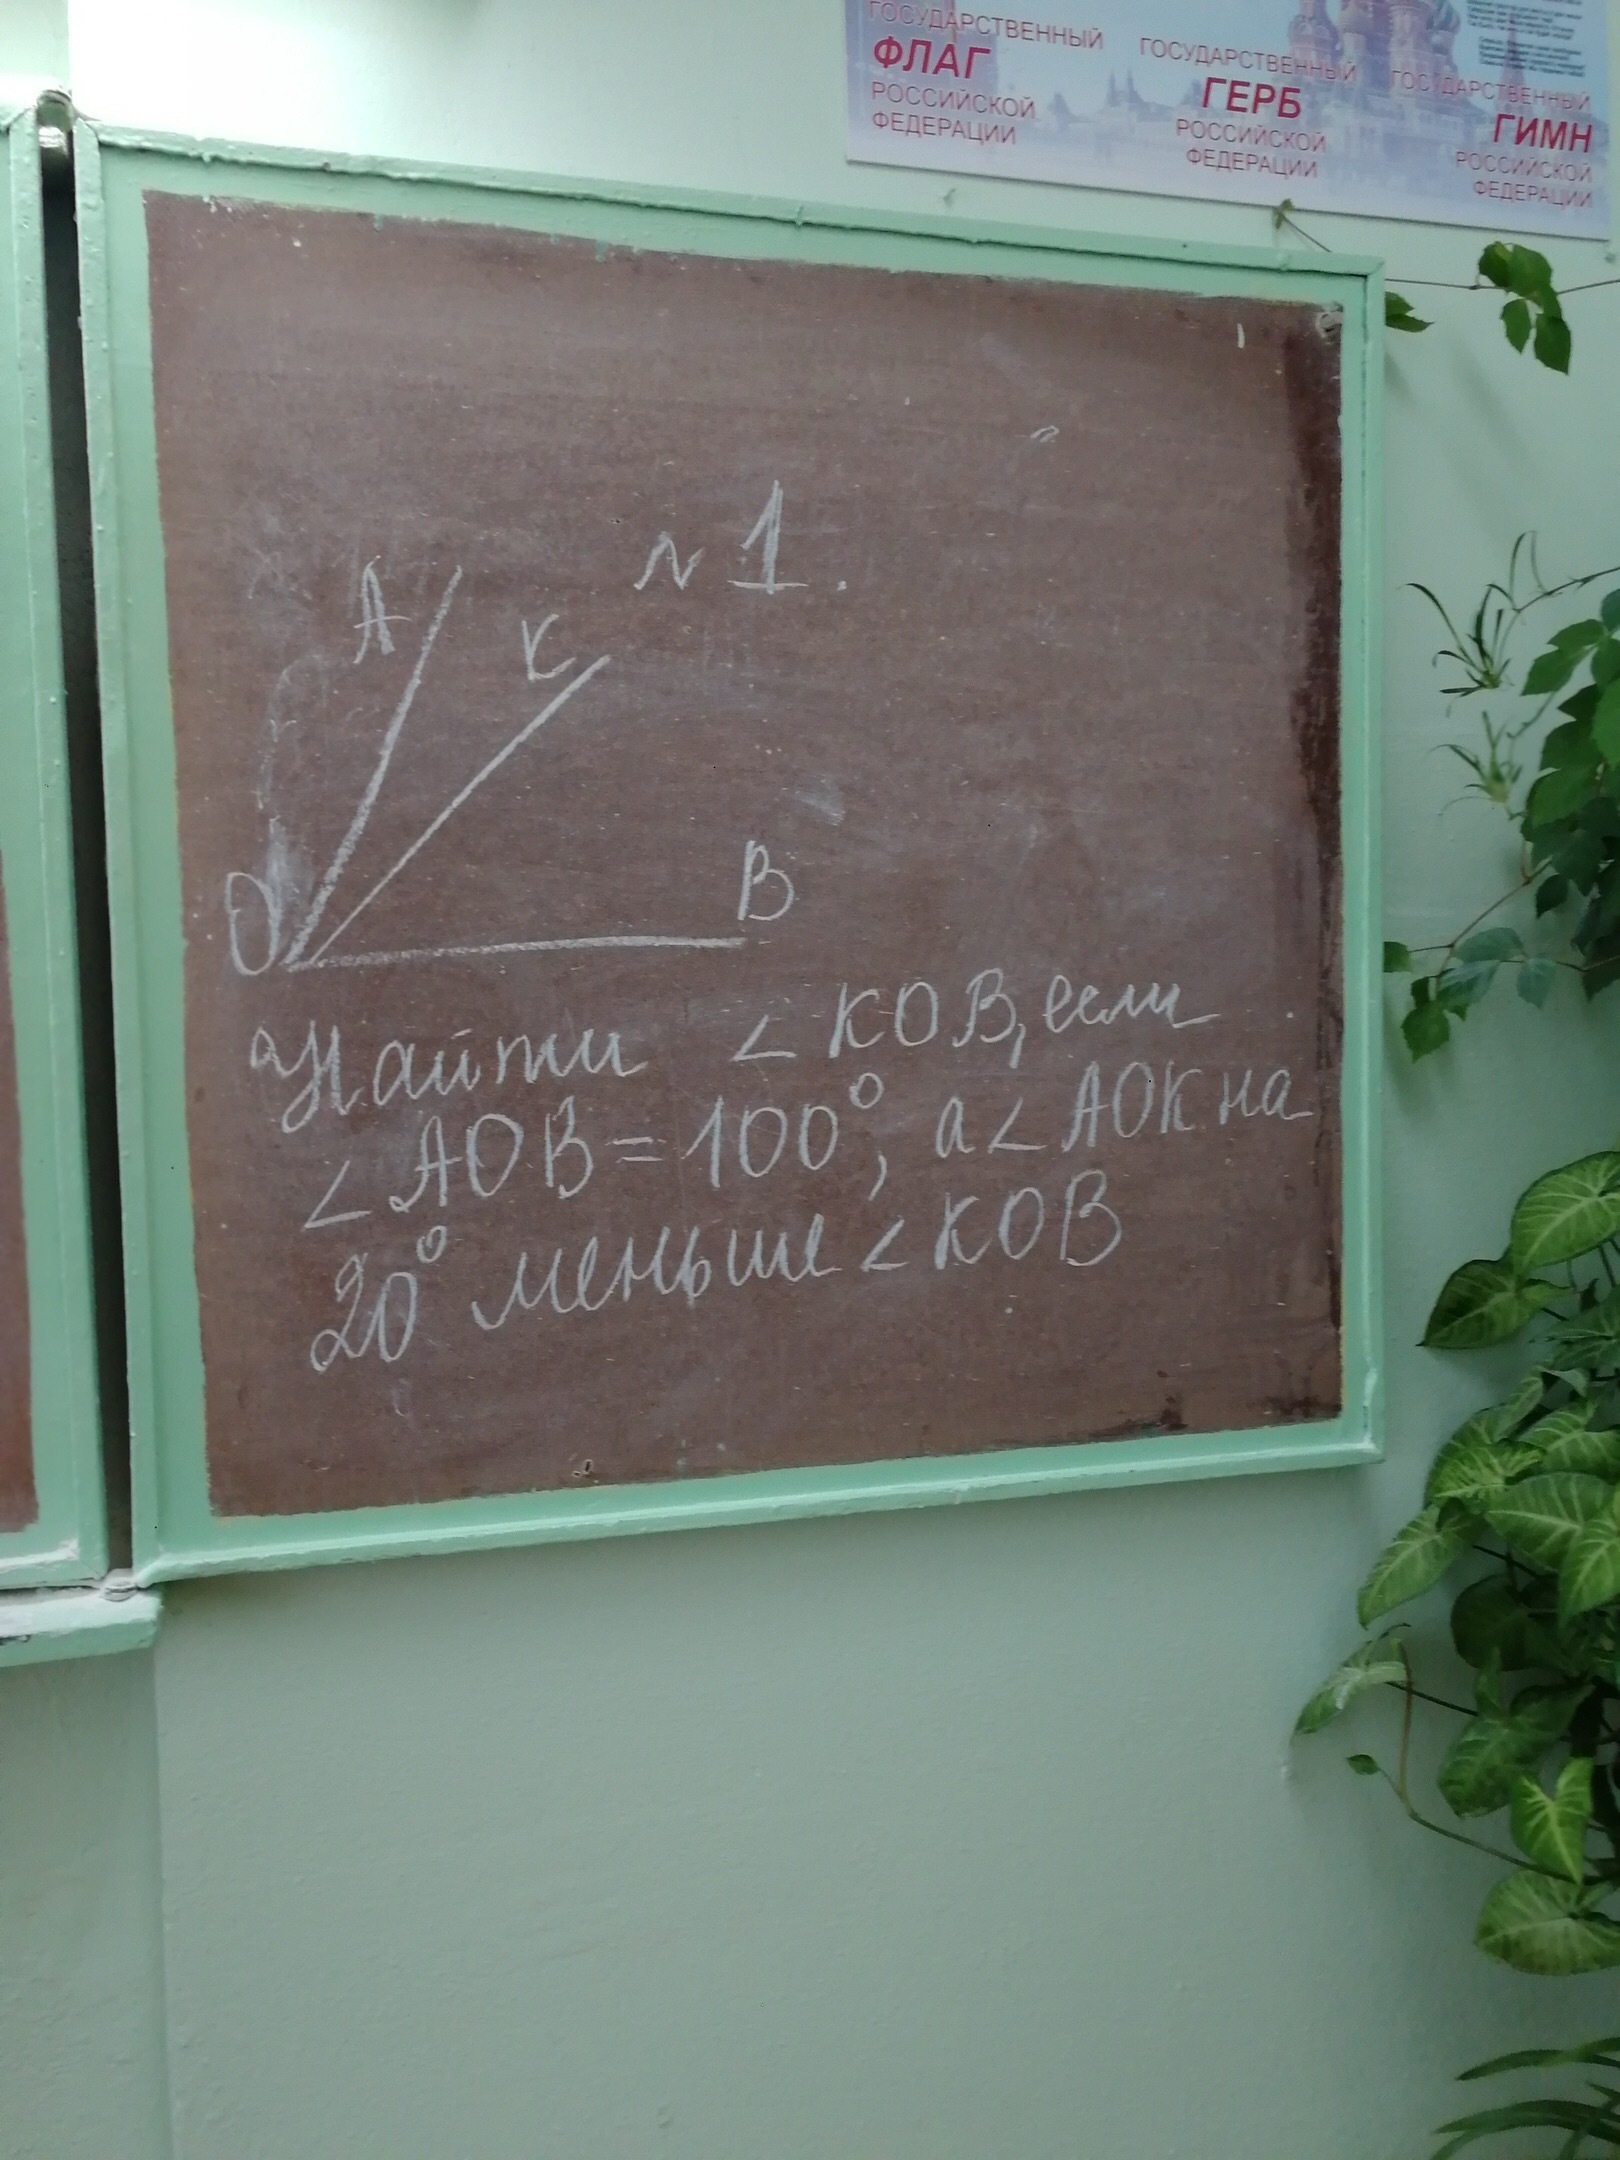 ГОСУДАРСТВЕННЫЙ
ФЛАГ
РОССИЙСКОЙ
ФЕДЕРАЦИИ
ГОСУДАРСТВЕННЫЙ
ГЕРБ
РОССИЙСКОЙ
ФЕДЕРАЦИИ
ГОСУДАРСТВЕННЫЙ
ГИМН
РОССИЙСКОЙ
ФЕДЕРАЦИИ
N 1.
A
K
O
B
Найти ∠ KOB, если
∠ AOB = 100°, а ∠ AOK на
20° меньше ∠ KOB